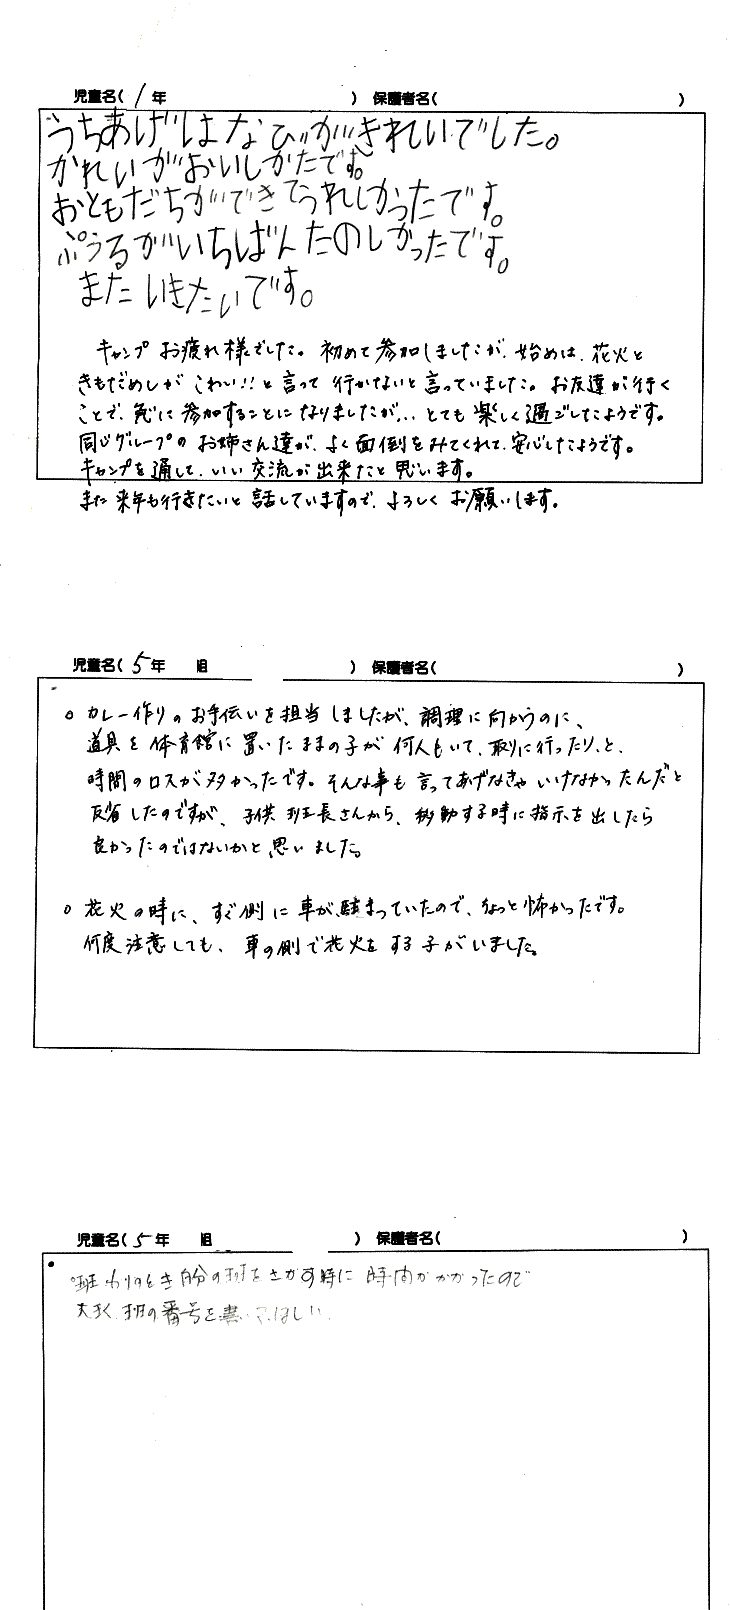 児童名( 1 年 ) 保護者名( )
うちあげはなびがきれいでした。
かれいがおいしかたです。
おともだちができてうれしかったです。
ぷうるがいちばんたのしかったです。
またいきたいです。
キャンプ お疲れ様でした。初めて参加しましたが、始めは、花火と
きもだめしが こわい!!と言って行かないと言っていました。お友達が行く
ことで、急に参加することになりましたが... とても楽しく過ごしたようです。
同じグループのお姉さん達が、よく面倒をみてくれて、安心したようです。
キャンプを通して、いい交流が出来たと思います。
また来年も行きたいと話していますので、よろしくお願いします。
児童名( 5 年 組 ) 保護者名( )
○ カレー作りのお手伝いを担当しましたが、調理に向かうのに、
道具を体育館に置いたままの子が何人もいて、取りに行ったり、と、
時間のロスが多かったです。そんな事も言ってあげなきゃいけなかったんだと
反省したのですが、子供班長さんから、移動する時に指示を出したら
良かったのではないかと、思いました。
○ 花火の時に、すぐ側に車が、駐まっていたので、ちょっと怖かったです。
何度注意しても、車の側で花火をする子がいました。
児童名( 5 年 組 ) 保護者名( )
班わりのとき自分の班をさがす時に時間がかかったので
大きく班の番号を書いてほしい。